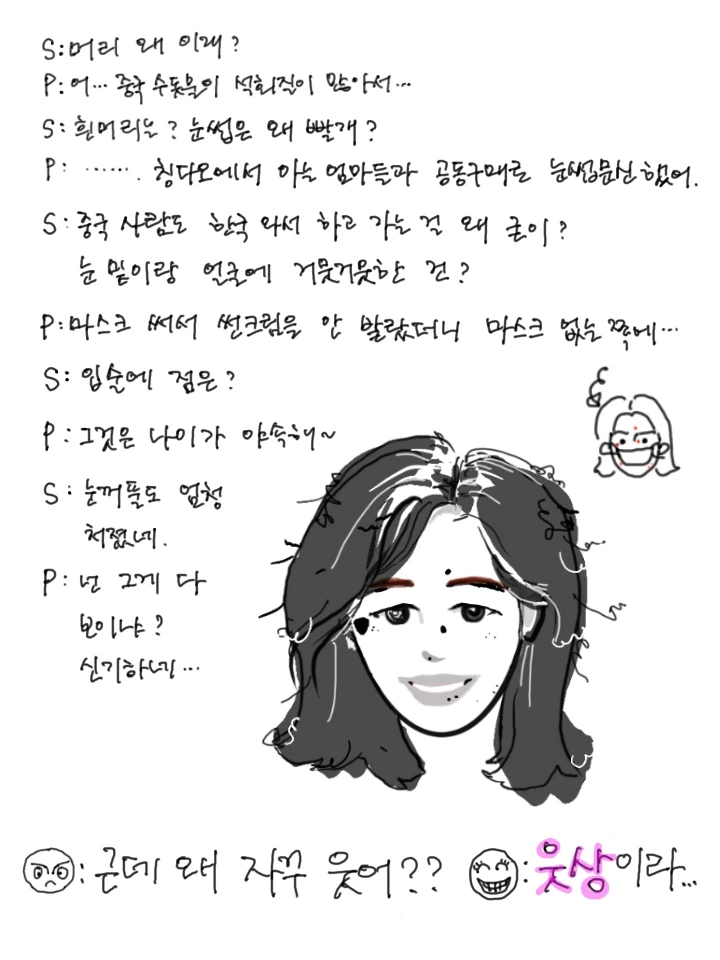 S: 머리 왜 이래?
P: 어… 중국 수돗물이 석회질이 많아서…
S: 흰머리는? 눈썹은 왜 빨개?
P: ……. 칭다오에서 아는 엄마들과 공동구매로 눈썹문신했어.
S: 중국 사람도 한국 와서 하고 가는 걸 왜 굳이?
눈 밑이랑 얼굴에 거뭇거뭇한 건?
P: 마스크 써서 썬크림을 안 발랐더니 마스크 없는 쪽에…
S: 입술에 점은?
P: 그것은 나이가 야속해~
S: 눈꺼풀도 엄청
처졌네.
P: 넌 그게 다
보이냐?
신기하네…
: 근데 왜 자꾸 웃어?? : 웃상이라…